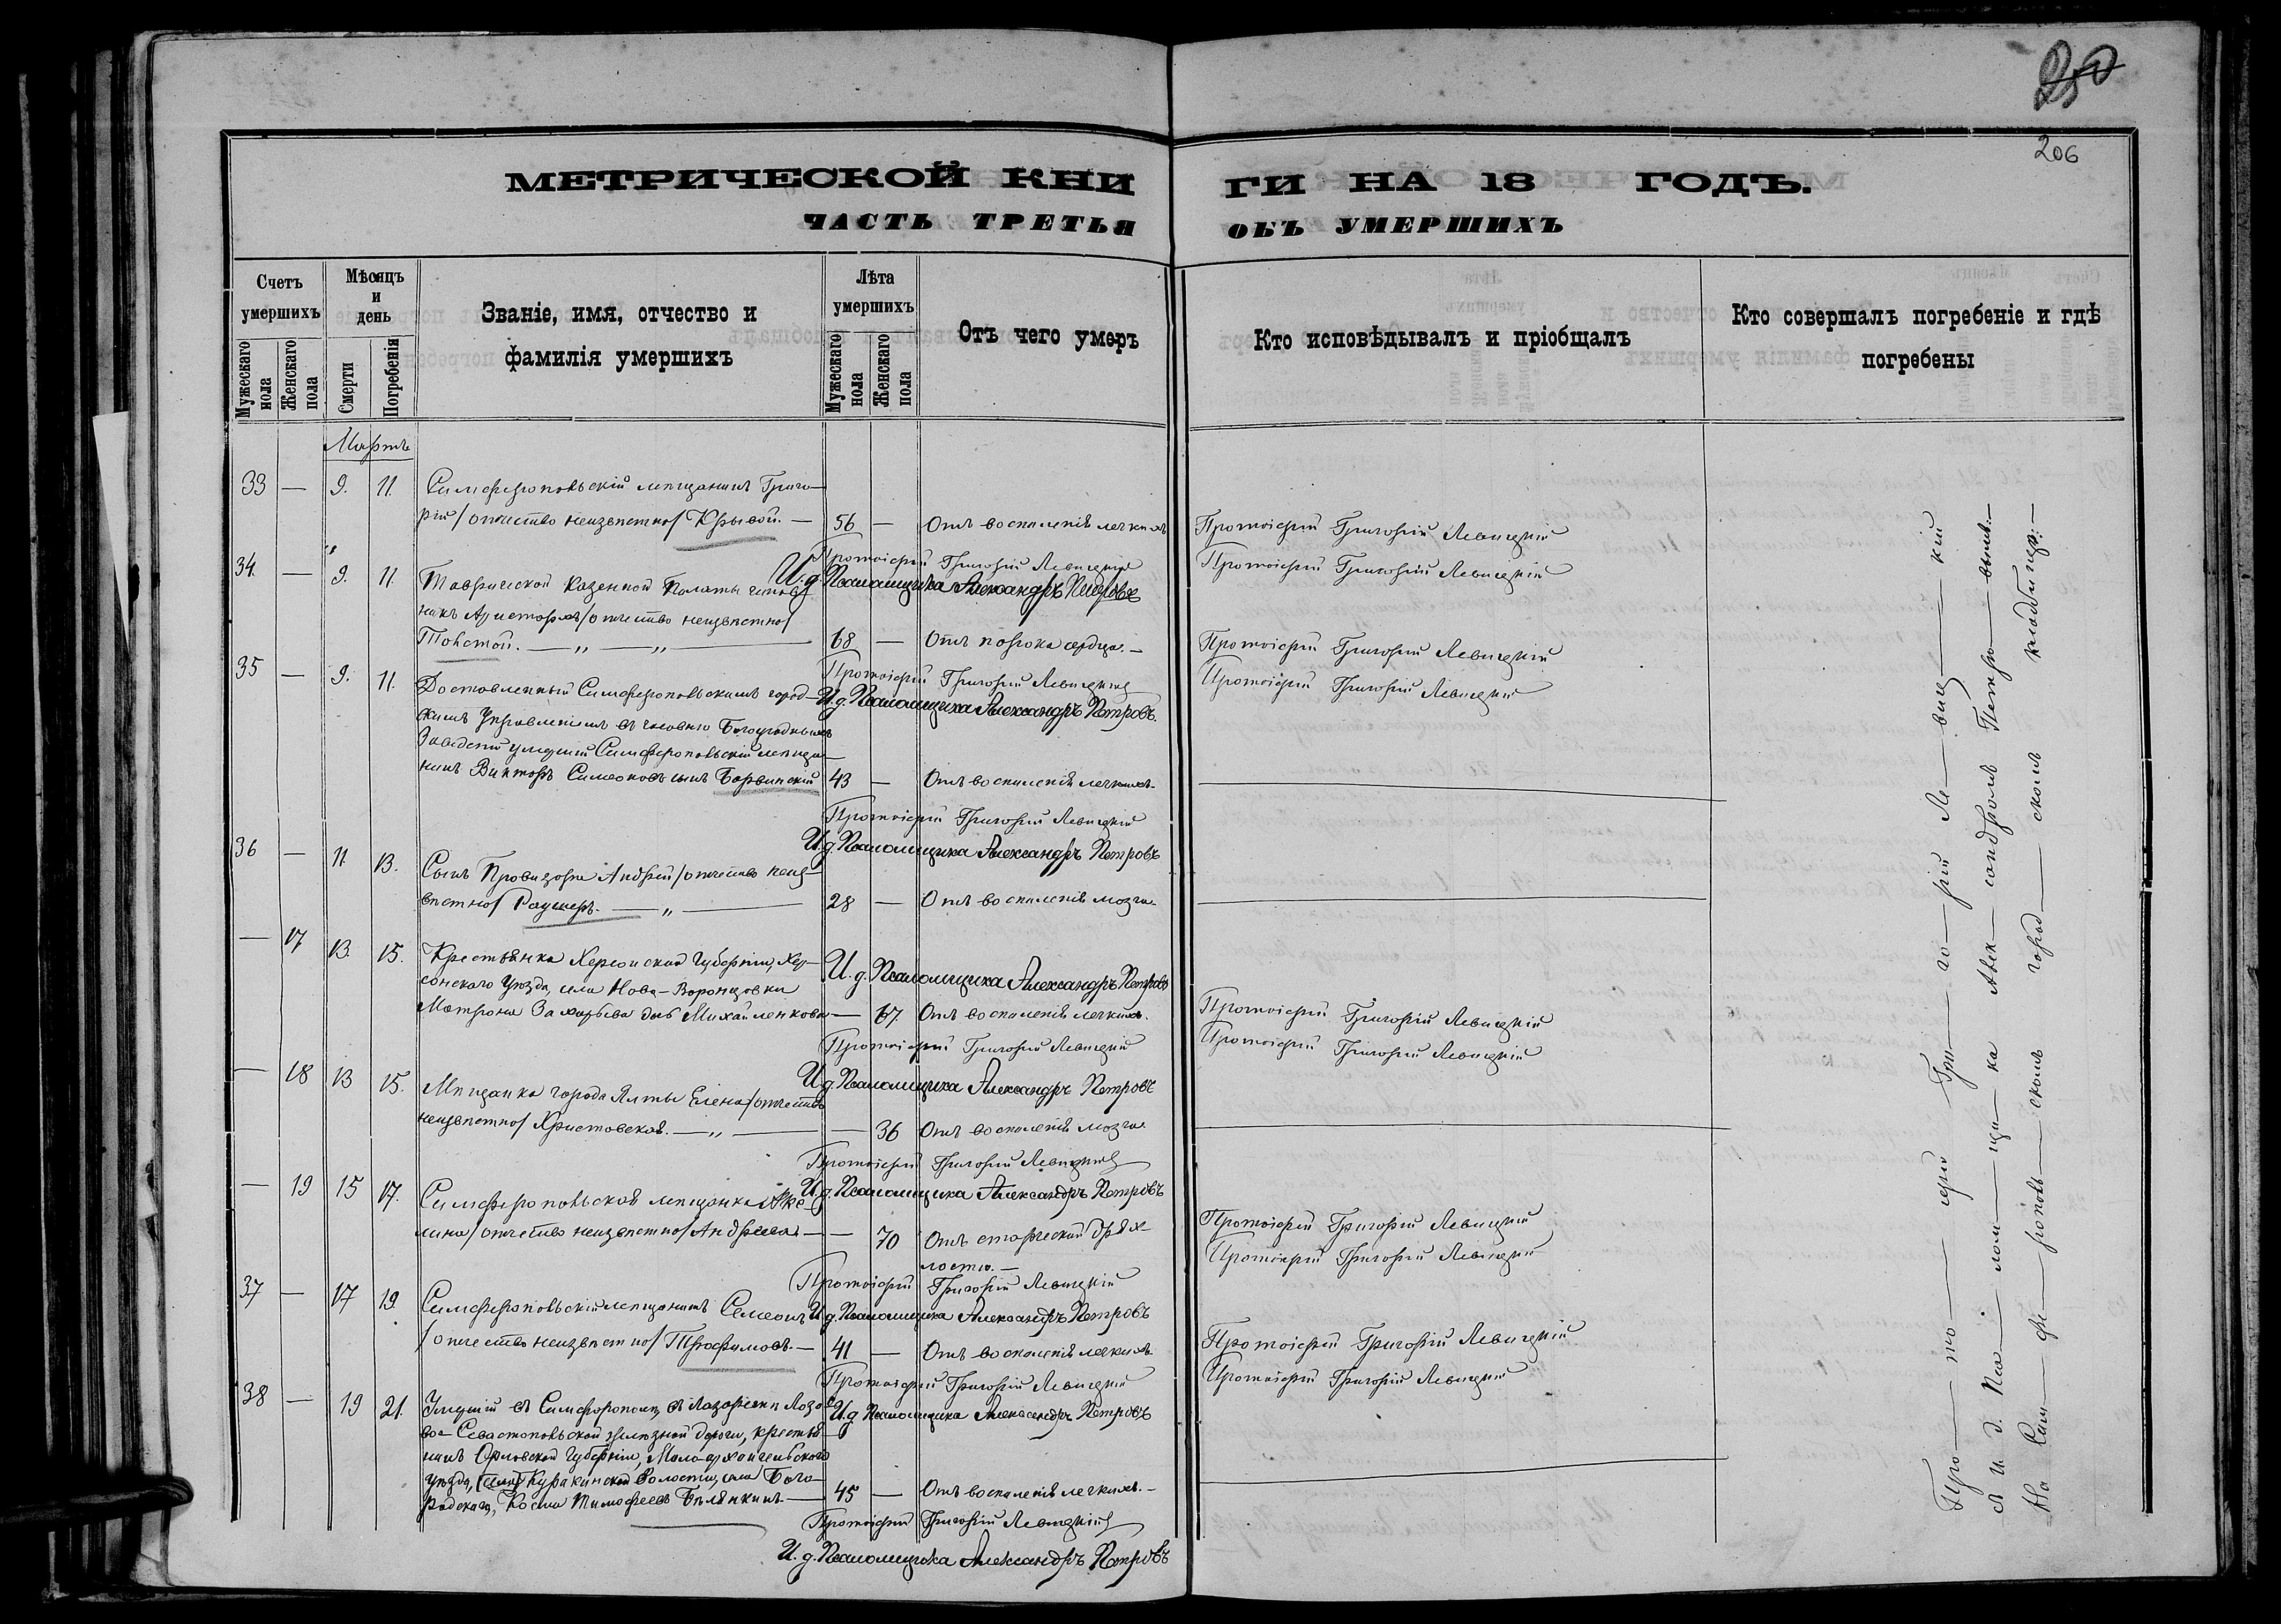 250
206
МЕТРИЧЕСКОЙ КНИ ГИ НА 18 ГОДЪ.
ЧАСТЬ ТРЕТЬЯ ОБЪ УМЕРШИХЪ
Счетъ умершихъ
Мужескаго пола
Женскаго пола
Мѣсяцъ и день
Смерти
Погребенія
Званіе, имя, отчество и фамилія умершихъ
Лѣта умершихъ
Мужескаго пола
Женскаго пола
Отъ чего умеръ
Кто исповѣдывалъ и пріобщалъ
Кто совершалъ погребеніе и гдѣ погребены
Мартъ
33 — 9. 11. Симферопольскій мѣщанинъ Григо-
рій /отчество неизвѣстно/ Крывой. — 56 — Отъ воспаленія легкихъ Протоіерей Григорій Левицкій
Протоіерей Григорій Левицкій Протоіерей Григорій Левицкій
И. д. Псаломщика Александръ Петровъ
34. — 9. 11. Таврической Казенной Палаты чинов-
никъ Аристархъ /отчество неизвѣстно/
Толстой. — „ — „ — 68 — Отъ порока сердца. — Протоіерей Григорій Левицкій
Протоіерей Григорій Левицкій Протоіерей Григорій Левицкій
И. д. Псаломщика Александръ Петровъ.
35 — 9. 11. Доставленный Симферопольскимъ город-
скимъ Управленіемъ въ часовню Богоугодныхъ
Заведеній умершій Симферопольскій мѣща-
нинъ Викторъ Симеоновъ сынъ Борвинскій 43 — Отъ воспаленія легкихъ.
Протоіерей Григорій Левицкій
И. д. Псаломщика Александръ Петровъ
36 — 11. 13. Сынъ Провизора Андрей /отчество неиз-
вѣстно/ Раушеръ. — „ — 28 — Отъ воспаленія мозга.
И. д. Псаломщика Александръ Петровъ
— 17 13. 15. Крестьянка Херсонской Губерніи, Хер-
сонскаго Уѣзда, села Ново-Воронцовки
Матрона Захарьева дочь Михайленкова — 67. Отъ воспаленія легкихъ. Протоіерей Григорій Левицкій
Протоіерей Григорій Левицкій Протоіерей Григорій Левицкій
И. д. Псаломщика Александръ Петровъ
— 18 13 15. Мѣщанка города Ялты Елена /отчество
неизвѣстно/ Христовская. — „ — — 36 Отъ воспаленія мозга.
Протоіерей Григорій Левицкій
И. д. Псаломщика Александръ Петровъ
— 19 15 17. Симферопольская мѣщанка Аке-
лина /отчество неизвѣстно/ Андреева — — 70 Отъ старческой дрях-
лости. — Протоіерей Григорій Левицкій
Протоіерей Григорій Левицкій Протоіерей Григорій Левицкій
И. д. Псаломщика Александръ Петровъ
37 — 17 19. Симферопольскій мѣщанинъ Семеонъ
/отчество неизвѣстно/ Трофимовъ. — 41 — Отъ воспаленія легкихъ Протоіерей Григорій Левицкій
Протоіерей Григорій Левицкій Протоіерей Григорій Левицкій
И. д. Псаломщика Александръ Петровъ
38 — 19 21. Умершій въ Симферополѣ, въ Лазаретѣ Лозо-
во-Севастопольской желѣзной дороги, крестья-
нинъ Орловской Губерніи, Мало-Архангельскаго
Уѣзда, Куракинской Волости, села Бого-
родскаго, Косма Тимофеевъ Бѣлянкинъ — 45 — Отъ воспаленія легкихъ. —
Протоіерей Григорій Левицкій
И. д. Псаломщика Александръ Петровъ
Про — то — іерей Гри — го — рій Ле — виц — кій
съ И. д. Пса — лом — щи — ка Алек — сандромъ Петро — вымъ. —
На Сим — фе — рополь — скомъ город — скомъ кладбищѣ. —